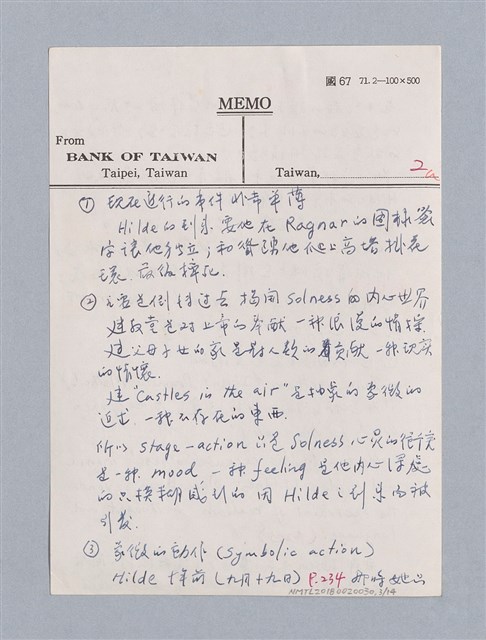 國 67 71.2—100×500
MEMO
From
BANK OF TAIWAN
Taipei, Taiwan
Taiwan,
2
① 現在進行的事件非常單薄
Hilde的到來 要他在 Ragnar的圖樣簽
字讓他獨立;和 他爬上高塔掛花
環 最後摔死.
② 主要是倒轉過去 揭開 Solness的內心世界
建教堂是對上帝的奉獻 一種浪漫的情操
建父母子女的家是對人類的貢獻 一種現實
的情懷.
建 "Castles in the air" 是抽象的象徵的
追求 一種不存在的東西.
所以 stage-action 只是 Solness 心灵的
是一种 mood 一种 feeling 是他内心深處
的只模糊感到的 因 Hilde之到來而被
引發.
③ 象徵的動作 (symbolic action)
Hilde 十年前 (九月十九日) P.234 那時她只
NMTL20180020030, 3/14